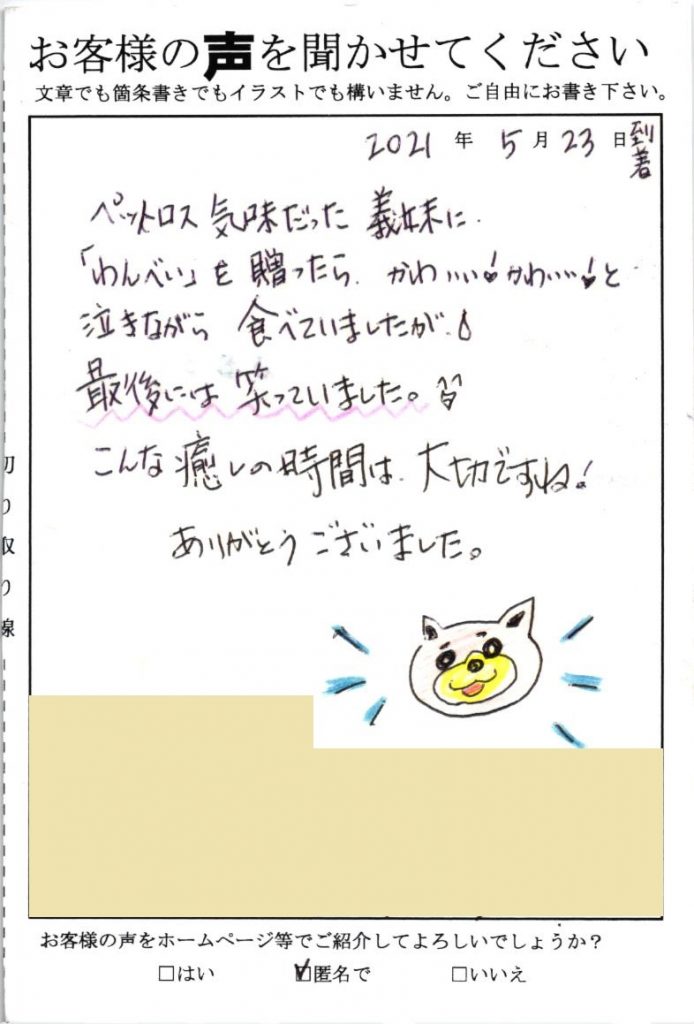 お客様の声を聞かせてください
文章でも箇条書きでもイラストでも構いません。ご自由にお書き下さい。
2021 年 5 月 23 日 到着
ペットロス気味だった義妹に
「わんべい」を贈ったら、かわいい!かわいい!と
泣きながら 食べていましたが、
最後には笑っていました。
こんな癒しの時間は、大切ですね!
ありがとうございました。
切り取り線
お客様の声をホームページ等でご紹介してよろしいでしょうか？
□はい ☑匿名で □いいえ